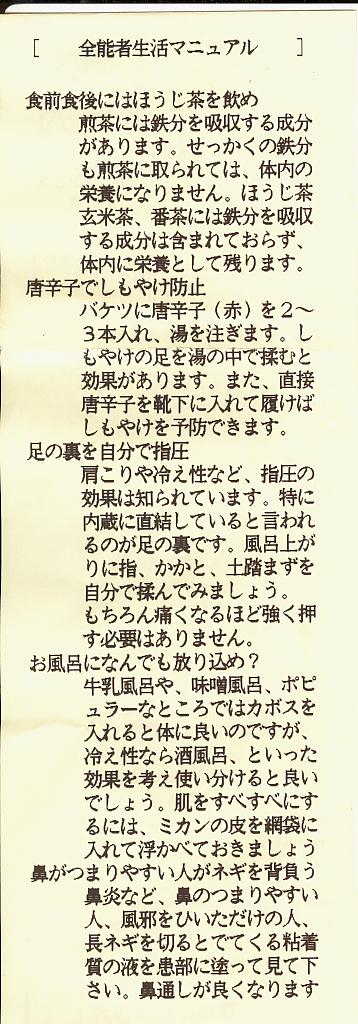 [ 全能者生活マニュアル ]
食前食後にはほうじ茶を飲め
煎茶には鉄分を吸収する成分
があります。せっかくの鉄分
も煎茶に取られては、体内の
栄養になりません。ほうじ茶
玄米茶、番茶には鉄分を吸収
する成分は含まれておらず、
体内に栄養として残ります。
唐辛子でしもやけ防止
バケツに唐辛子(赤)を2~
3本入れ、湯を注ぎます。し
もやけの足を湯の中で揉むと
効果があります。また、直接
唐辛子を靴下に入れて履けば
しもやけを予防できます。
足の裏を自分で指圧
肩こりや冷え性など、指圧の
効果は知られています。特に
内蔵に直結していると言われ
るのが足の裏です。風呂上が
りに指、かかと、土踏まずを
自分で揉んでみましょう。
もちろん痛くなるほど強く押
す必要はありません。
お風呂になんでも放り込め?
牛乳風呂や、味噌風呂、ポピ
ュラーなところではカボスを
入れると体に良いのですが、
冷え性なら酒風呂、といった
効果を考え使い分けると良い
でしょう。肌をすべすべにす
るには、ミカンの皮を網袋に
入れて浮かべておきましょう
鼻がつまりやすい人がネギを背負う
鼻炎など、鼻のつまりやすい
人、風邪をひいただけの人、
長ネギを切るとでてくる粘着
質の液を患部に塗って見て下
さい。鼻通しが良くなります